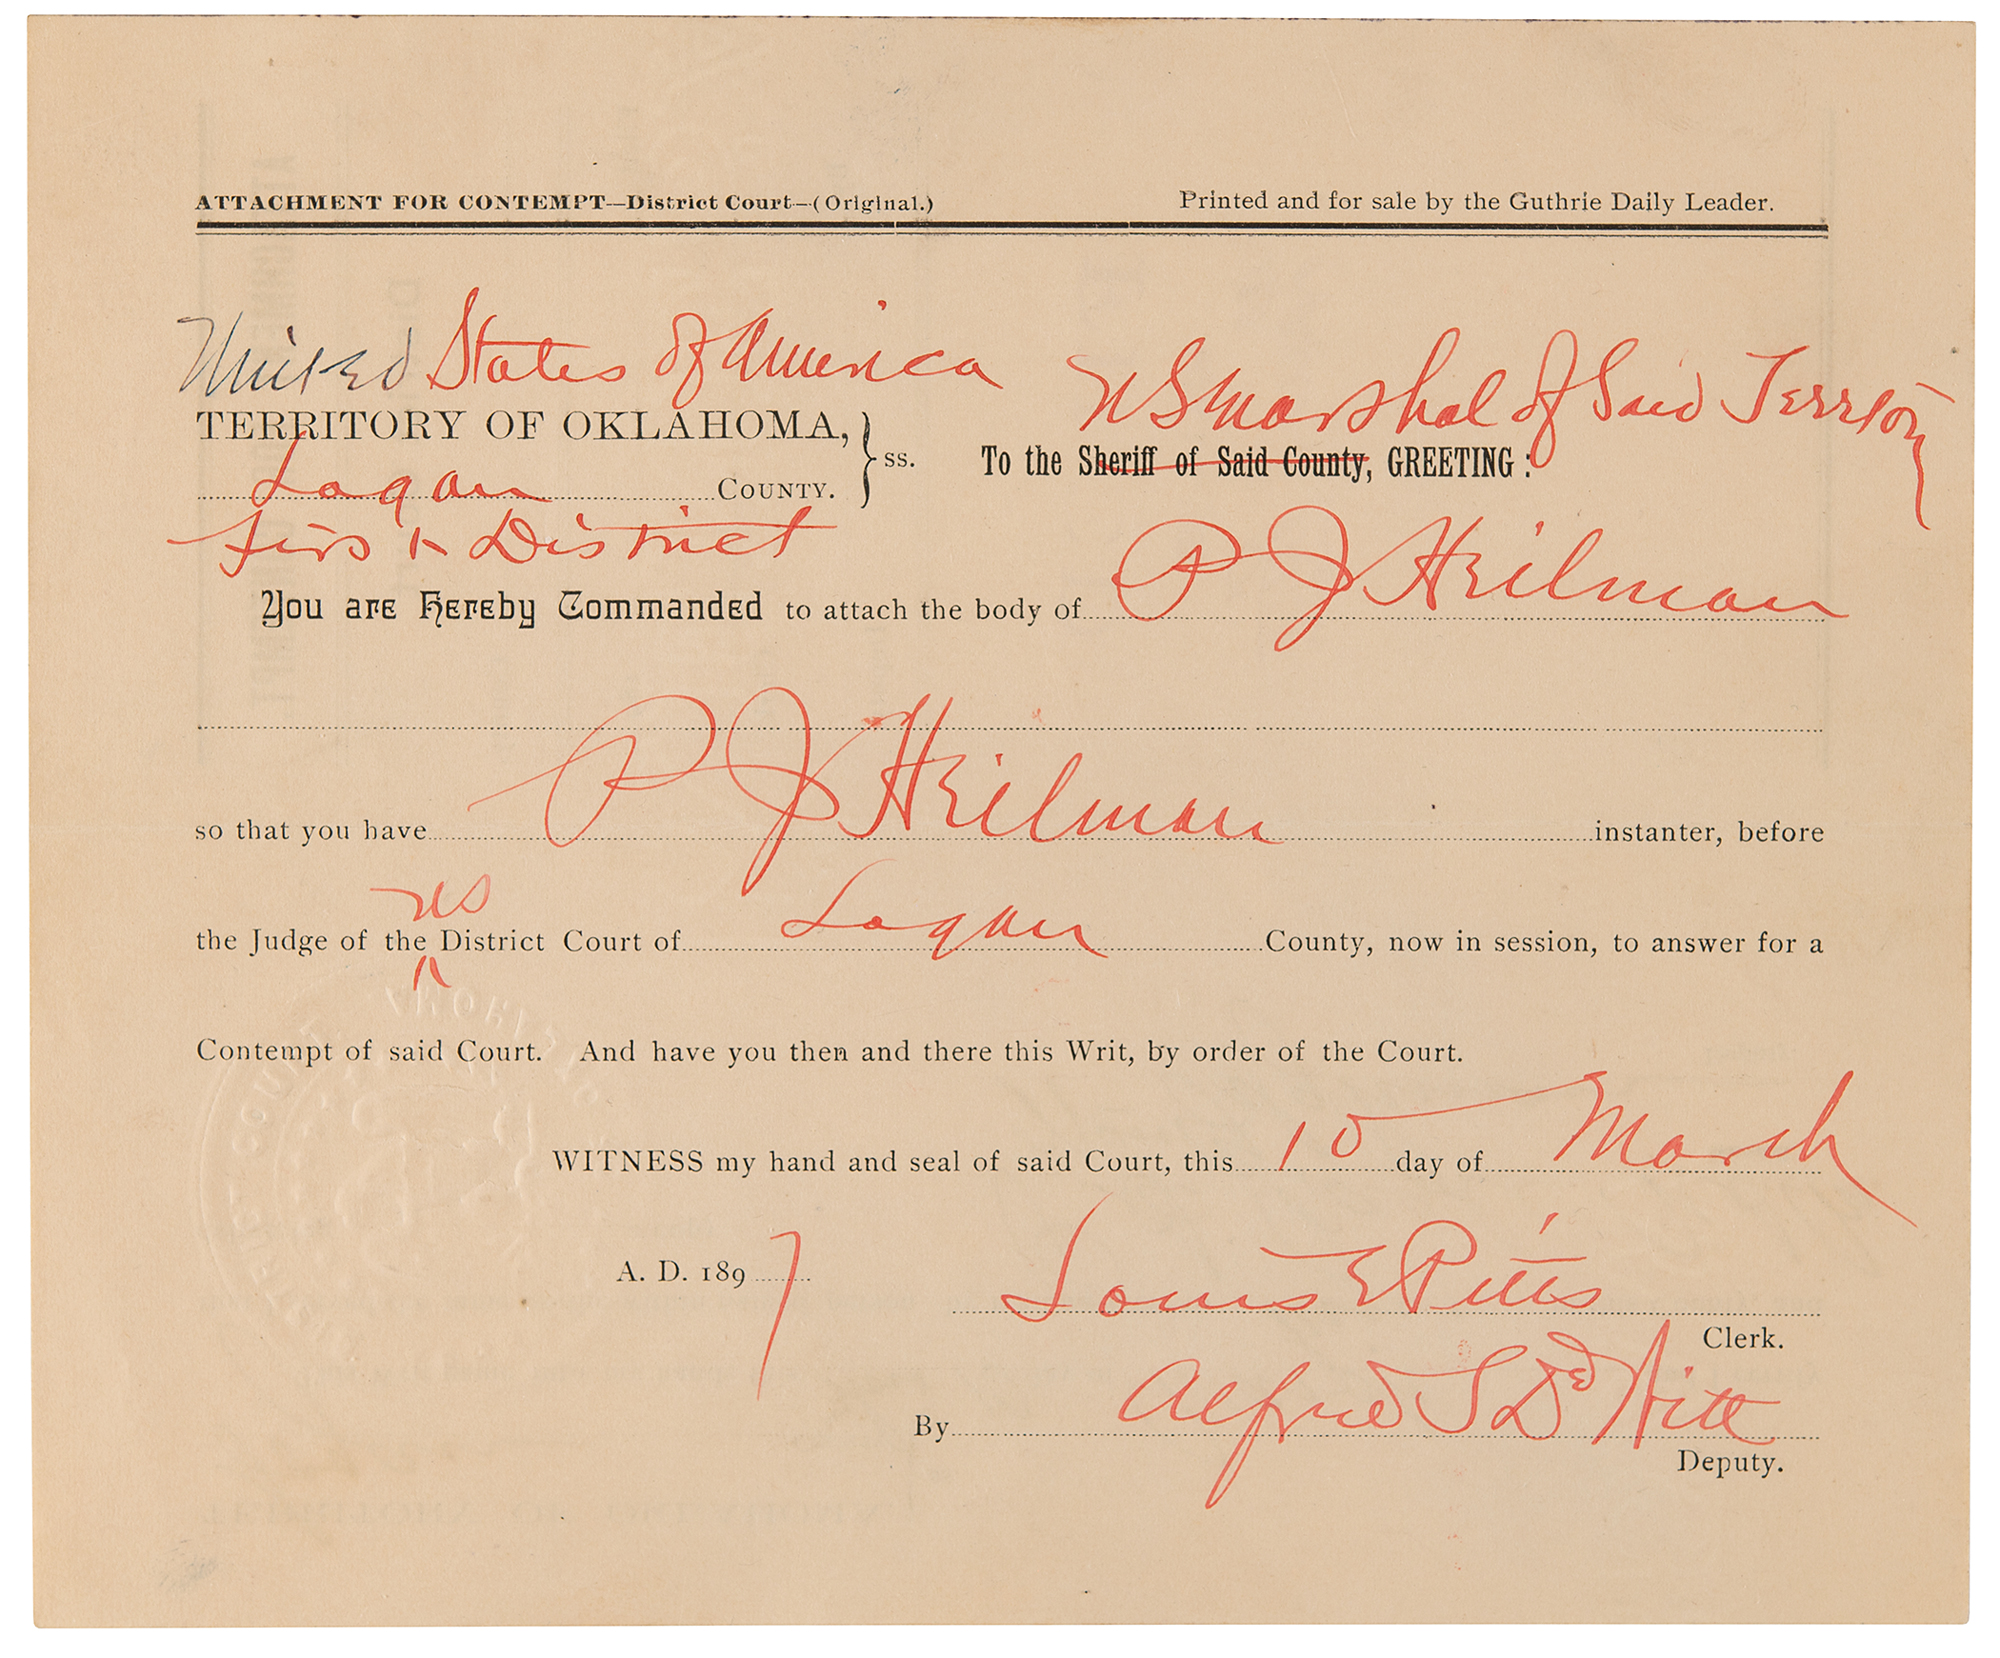 ATTACHMENT FOR CONTEMPT—District Court—(Original.) Printed and for sale by the Guthrie Daily Leader.
United States of America
U S Marshal of Said Territory
TERRITORY OF OKLAHOMA,
ss.
To the Sheriff of Said County, GREETING:
Logan COUNTY.
First District
You are Hereby Commanded to attach the body of P J Heilman
so that you have P J Heilman instanter, before
US
the Judge of the District Court of Logan County, now in session, to answer for a
Contempt of said Court. And have you then and there this Writ, by order of the Court.
WITNESS my hand and seal of said Court, this 15 day of March
A. D. 1897
Louis E Pitts
Clerk.
By Alfred S DeWitt
Deputy.